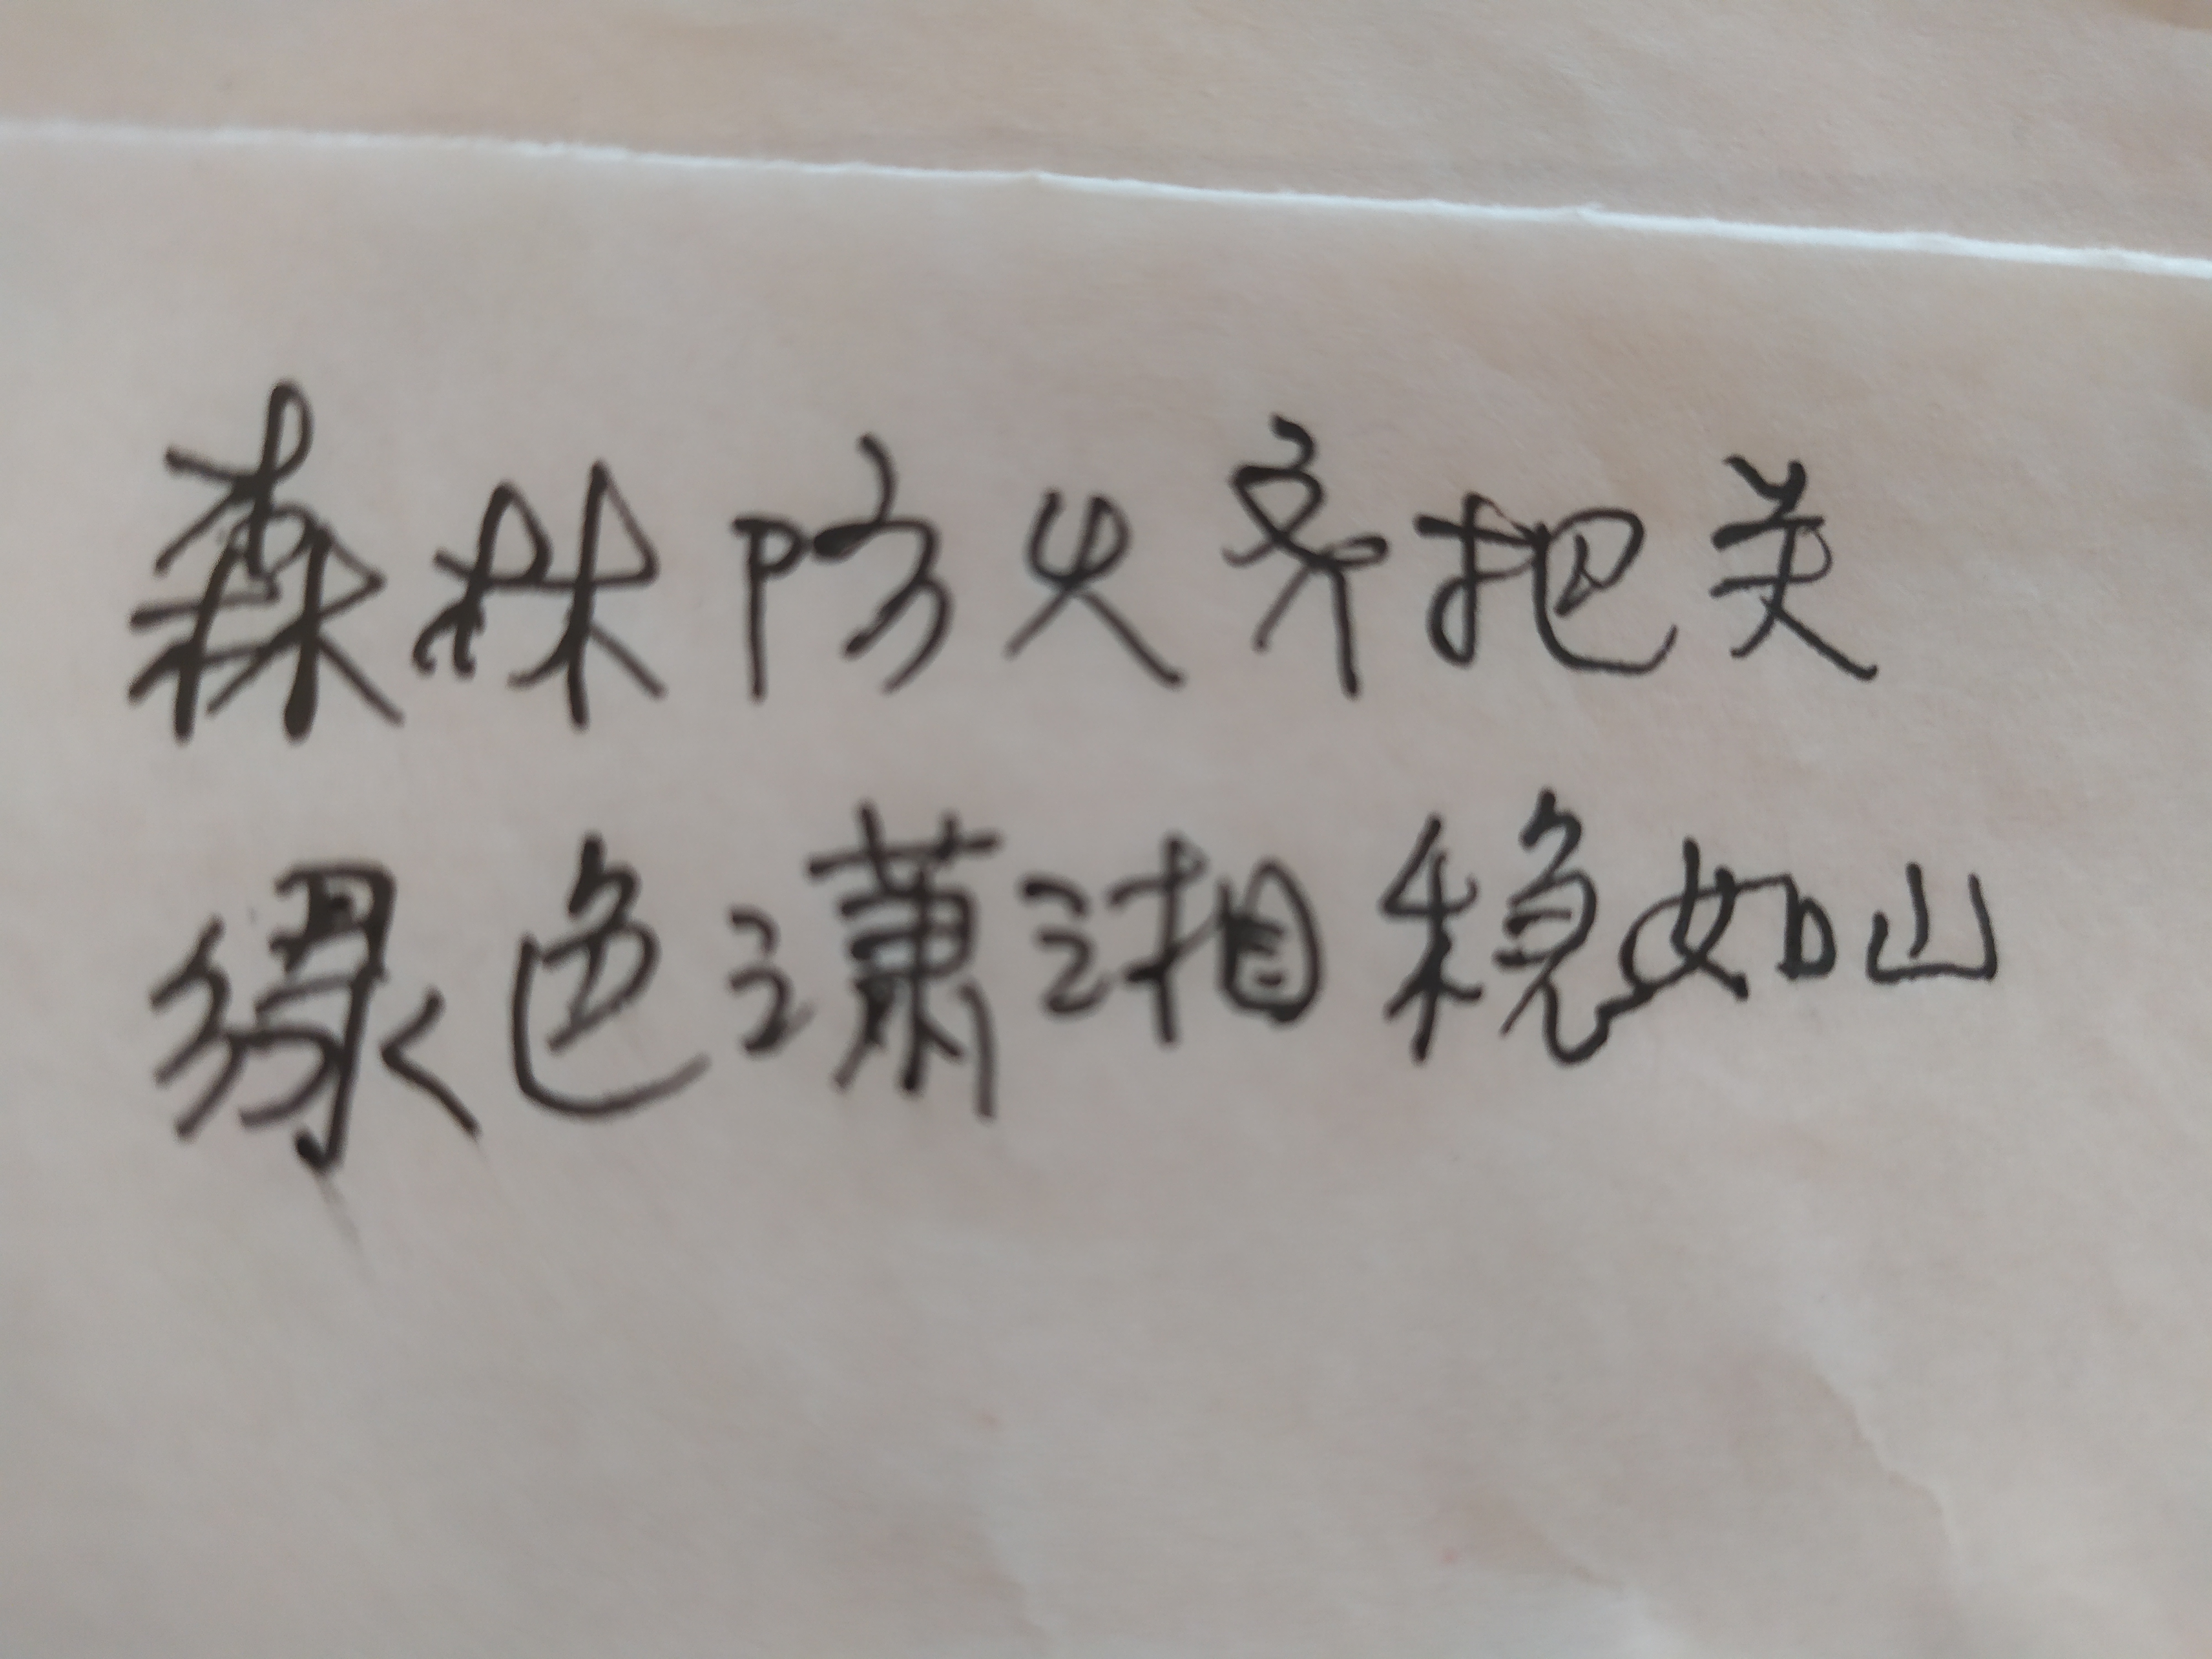 森林防火齐把关
绿色潇湘稳如山